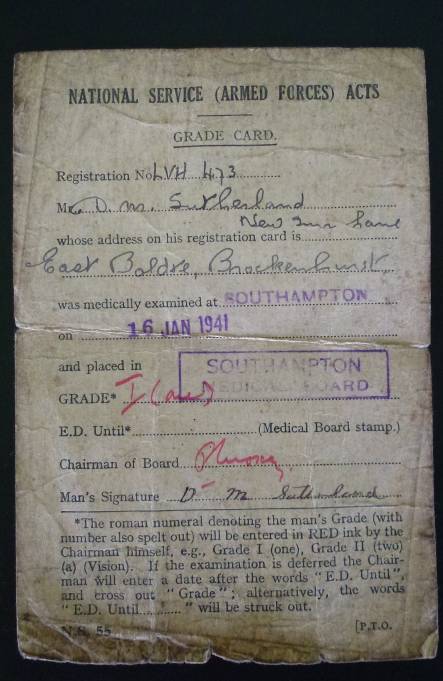 NATIONAL SERVICE (ARMED FORCES) ACTS
GRADE CARD.
Registration No LVH 473
Mr. D. M. Sutherland
New Inn Lane
whose address on his registration card is
East Boldre, Brockenhurst,
was medically examined at SOUTHAMPTON
on 16 JAN 1941
and placed in
SOUTHAMPTON
MEDICAL BOARD
GRADE* I (one)
E.D. Until* (Medical Board stamp.)
Chairman of Board
Man's Signature D M Sutherland
*The roman numeral denoting the man's Grade (with
number also spelt out) will be entered in RED ink by the
Chairman himself, e.g., Grade I (one), Grade II (two)
(a) (Vision). If the examination is deferred the Chair-
man will enter a date after the words "E.D. Until",
and cross out "Grade"; alternatively, the words
"E.D. Until.........." will be struck out.
N.S. 55 [P.T.O.